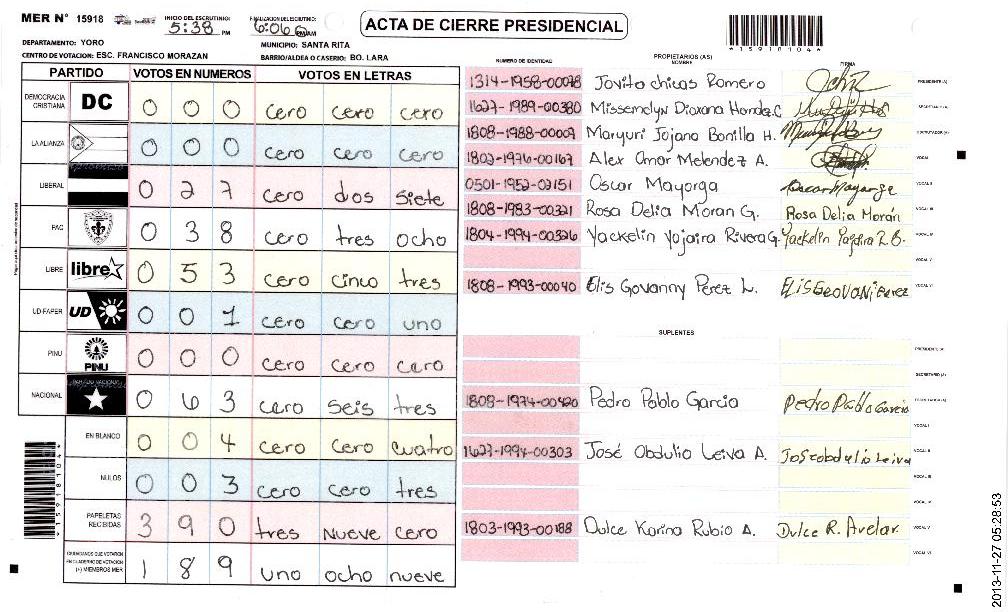 MER N° 15918
INICIO DEL ESCRUTINIO: 5:38 PM
FINALIZACION DEL ESCRUTINIO: 6:06 PM/AM
ACTA DE CIERRE PRESIDENCIAL
*15918104*
DEPARTAMENTO: YORO
MUNICIPIO: SANTA RITA
CENTRO DE VOTACION: ESC. FRANCISCO MORAZAN
BARRIO/ALDEA O CASERIO: BO. LARA
PARTIDO VOTOS EN NUMEROS VOTOS EN LETRAS
DEMOCRACIA CRISTIANA DC 0 0 0 cero cero cero
LA ALIANZA 0 0 0 cero cero cero
LIBERAL 0 2 7 cero dos siete
PAC 0 3 8 cero tres ocho
LIBRE libre 0 5 3 cero cinco tres
UD-FAPER UD 0 0 1 cero cero uno
PINU PINU 0 0 0 cero cero cero
NACIONAL 0 6 3 cero seis tres
EN BLANCO 0 0 4 cero cero cuatro
NULOS 0 0 3 cero cero tres
PAPELETAS RECIBIDAS 3 9 0 tres nueve cero
CIUDADANOS QUE VOTARON EN CUADERNO DE VOTACION (+) MIEMBROS MER 1 8 9 uno ocho nueve
*15918104*
PROPIETARIOS (AS)
NUMERO DE IDENTIDAD NOMBRE FIRMA
1314-1958-00098 Jovita chicas Romero PRESIDENTE (A)
1627-1989-00380 Missemelyn Dioxana Hernde.C SECRETARIO (A)
1808-1988-00009 Maryuri Jojana Bonilla H. ESCRUTADOR (A)
1803-1976-00167 Alex Omar Melendez A. VOCAL I
0501-1952-02151 Oscar Mayorga Oscar Mayorga VOCAL II
1808-1983-00321 Rosa Delia Moran G. Rosa Delia Morán VOCAL III
1804-1994-00326 Yackelin Yojaira Rivera G. Yackelin Yojaira R.G. VOCAL IV
VOCAL V
1808-1993-00040 Elis Govanny Perez L. Elis Geovani Perez VOCAL VI
SUPLENTES
PRESIDENTE (A)
SECRETARIO (A)
1808-1974-00420 Pedro Pablo Garcia Pedro Pablo Garcia ESCRUTADOR (A)
VOCAL I
1627-1994-00303 José Obdulio Leiva A. José obdulio Leiva VOCAL II
VOCAL III
VOCAL IV
1803-1993-00188 Dulce Karina Rubio A. Dulce R. Avelar VOCAL V
VOCAL VI
2013-11-27 05:28:53